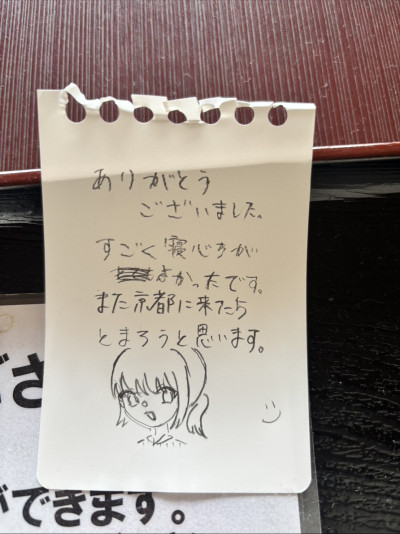 ありがとう
ございました。
すごく寝心すが
よかったです。
また京都に来たら
とまろうと思います。
ださ
ができます。